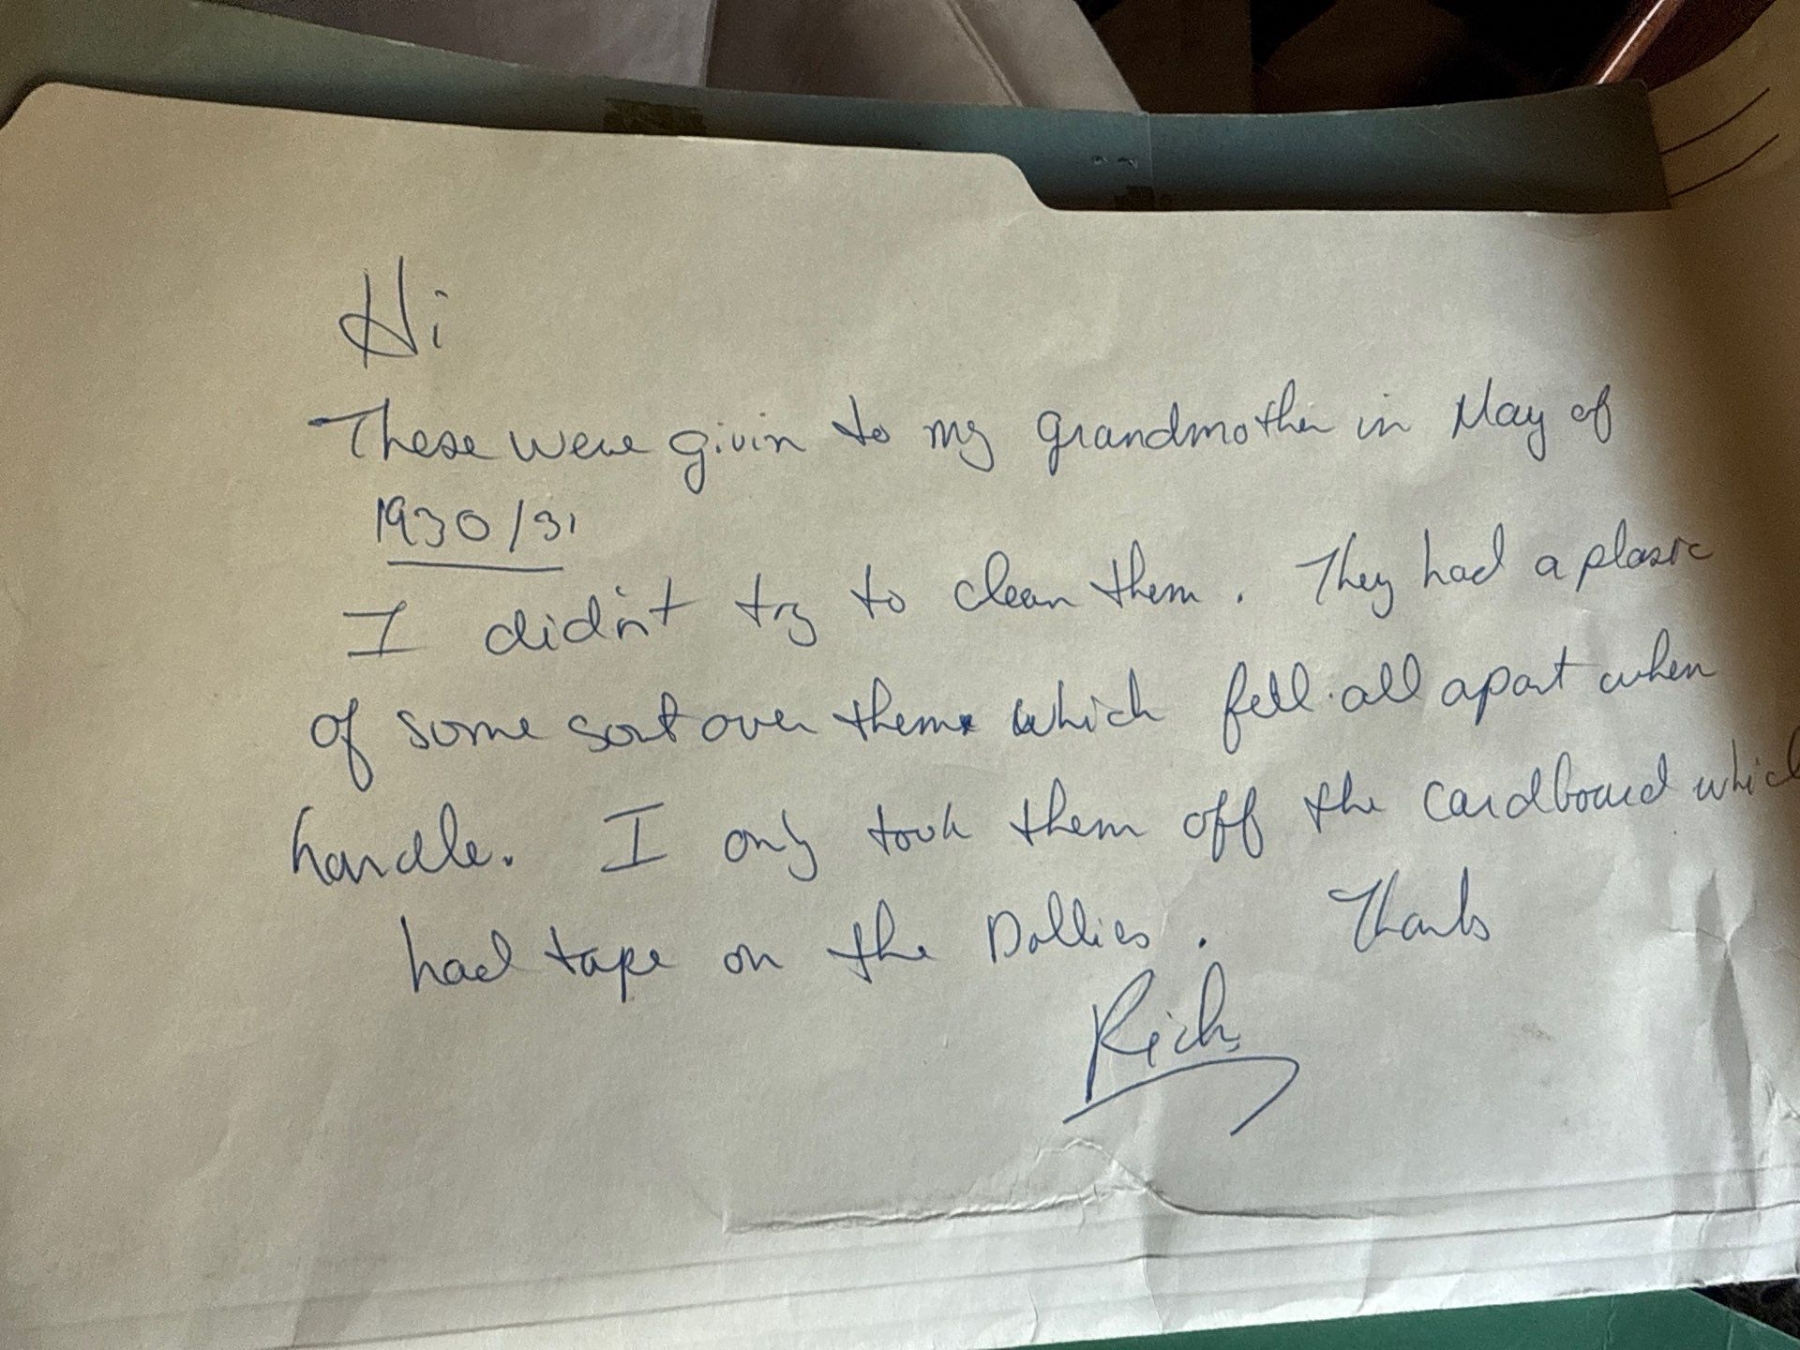 Hi
These were givin to my grandmother in May of
1930/31
I didn't try to clean them. They had a plasic
of some sort over them which fell all apart when
handle. I only took them off the cardboard which
had tape on the Dollies. Thanks
Rich